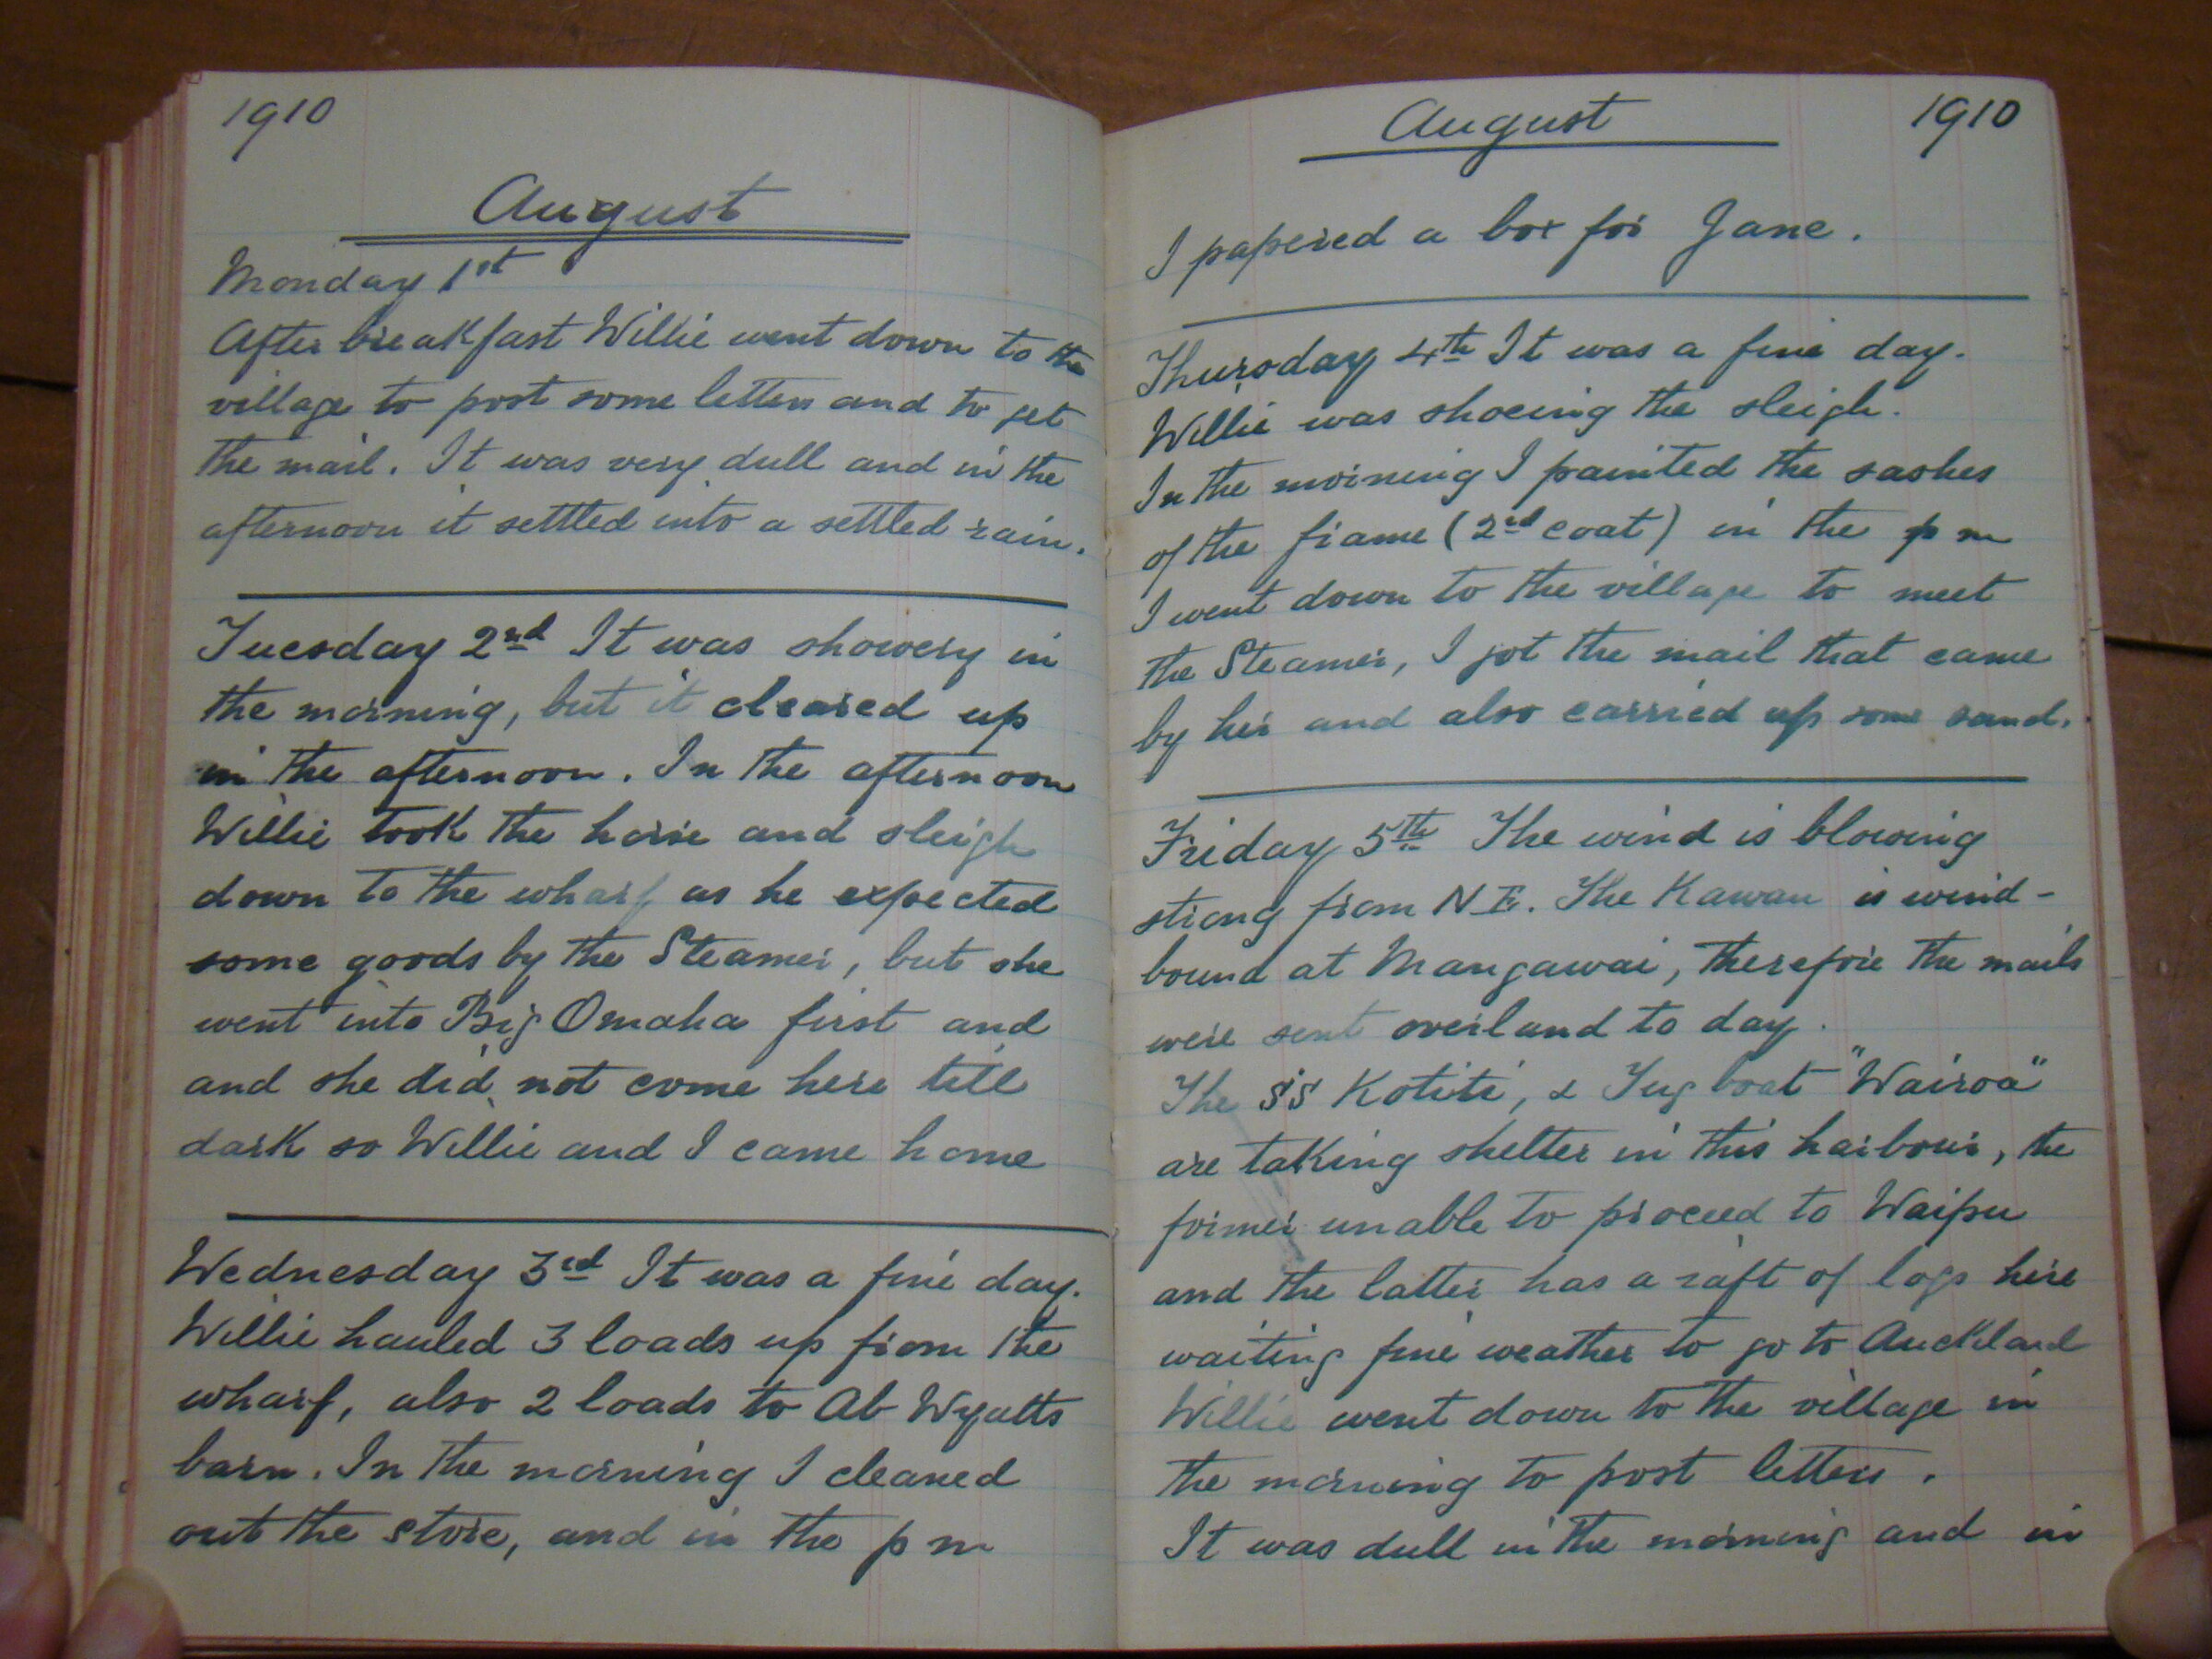 1910
August
Monday 1st
After breakfast Willie went down to the
village to post some letters and to get
the mail. It was very dull and in the
afternoon it settled into a settled rain.
Tuesday 2nd It was showery in
the morning, but it cleared up
in the afternoon. In the afternoon
Willie took the horse and sleigh
down to the wharf as he expected
some goods by the Steamer, but she
went into Big Omaha first and
and she did not come here till
dark so Willie and I came home
Wednesday 3rd It was a fine day.
Willie hauled 3 loads up from the
wharf, also 2 loads to Ab Wyatts
barn. In the morning I cleaned
out the store, and in the p m
August 1910
I papered a box for Jane.
Thursday 4th It was a fine day.
Willie was shoeing the sleigh.
In the morning I painted the sashes
of the frame (2nd coat) in the p m
I went down to the village to meet
the Steamer, I got the mail that came
by her and also carried up some sand.
Friday 5th The wind is blowing
strong from N E. The Kawau is wind-
bound at Mangawai, therefore the mails
were sent overland to day.
The SS Kotiti, & Tug boat "Wairoa"
are taking shelter in this harbour, the
former unable to proceed to Waipu
and the latter has a raft of logs here
waiting fine weather to go to Auckland
Willie went down to the village in
the morning to post letters.
It was dull in the morning and in